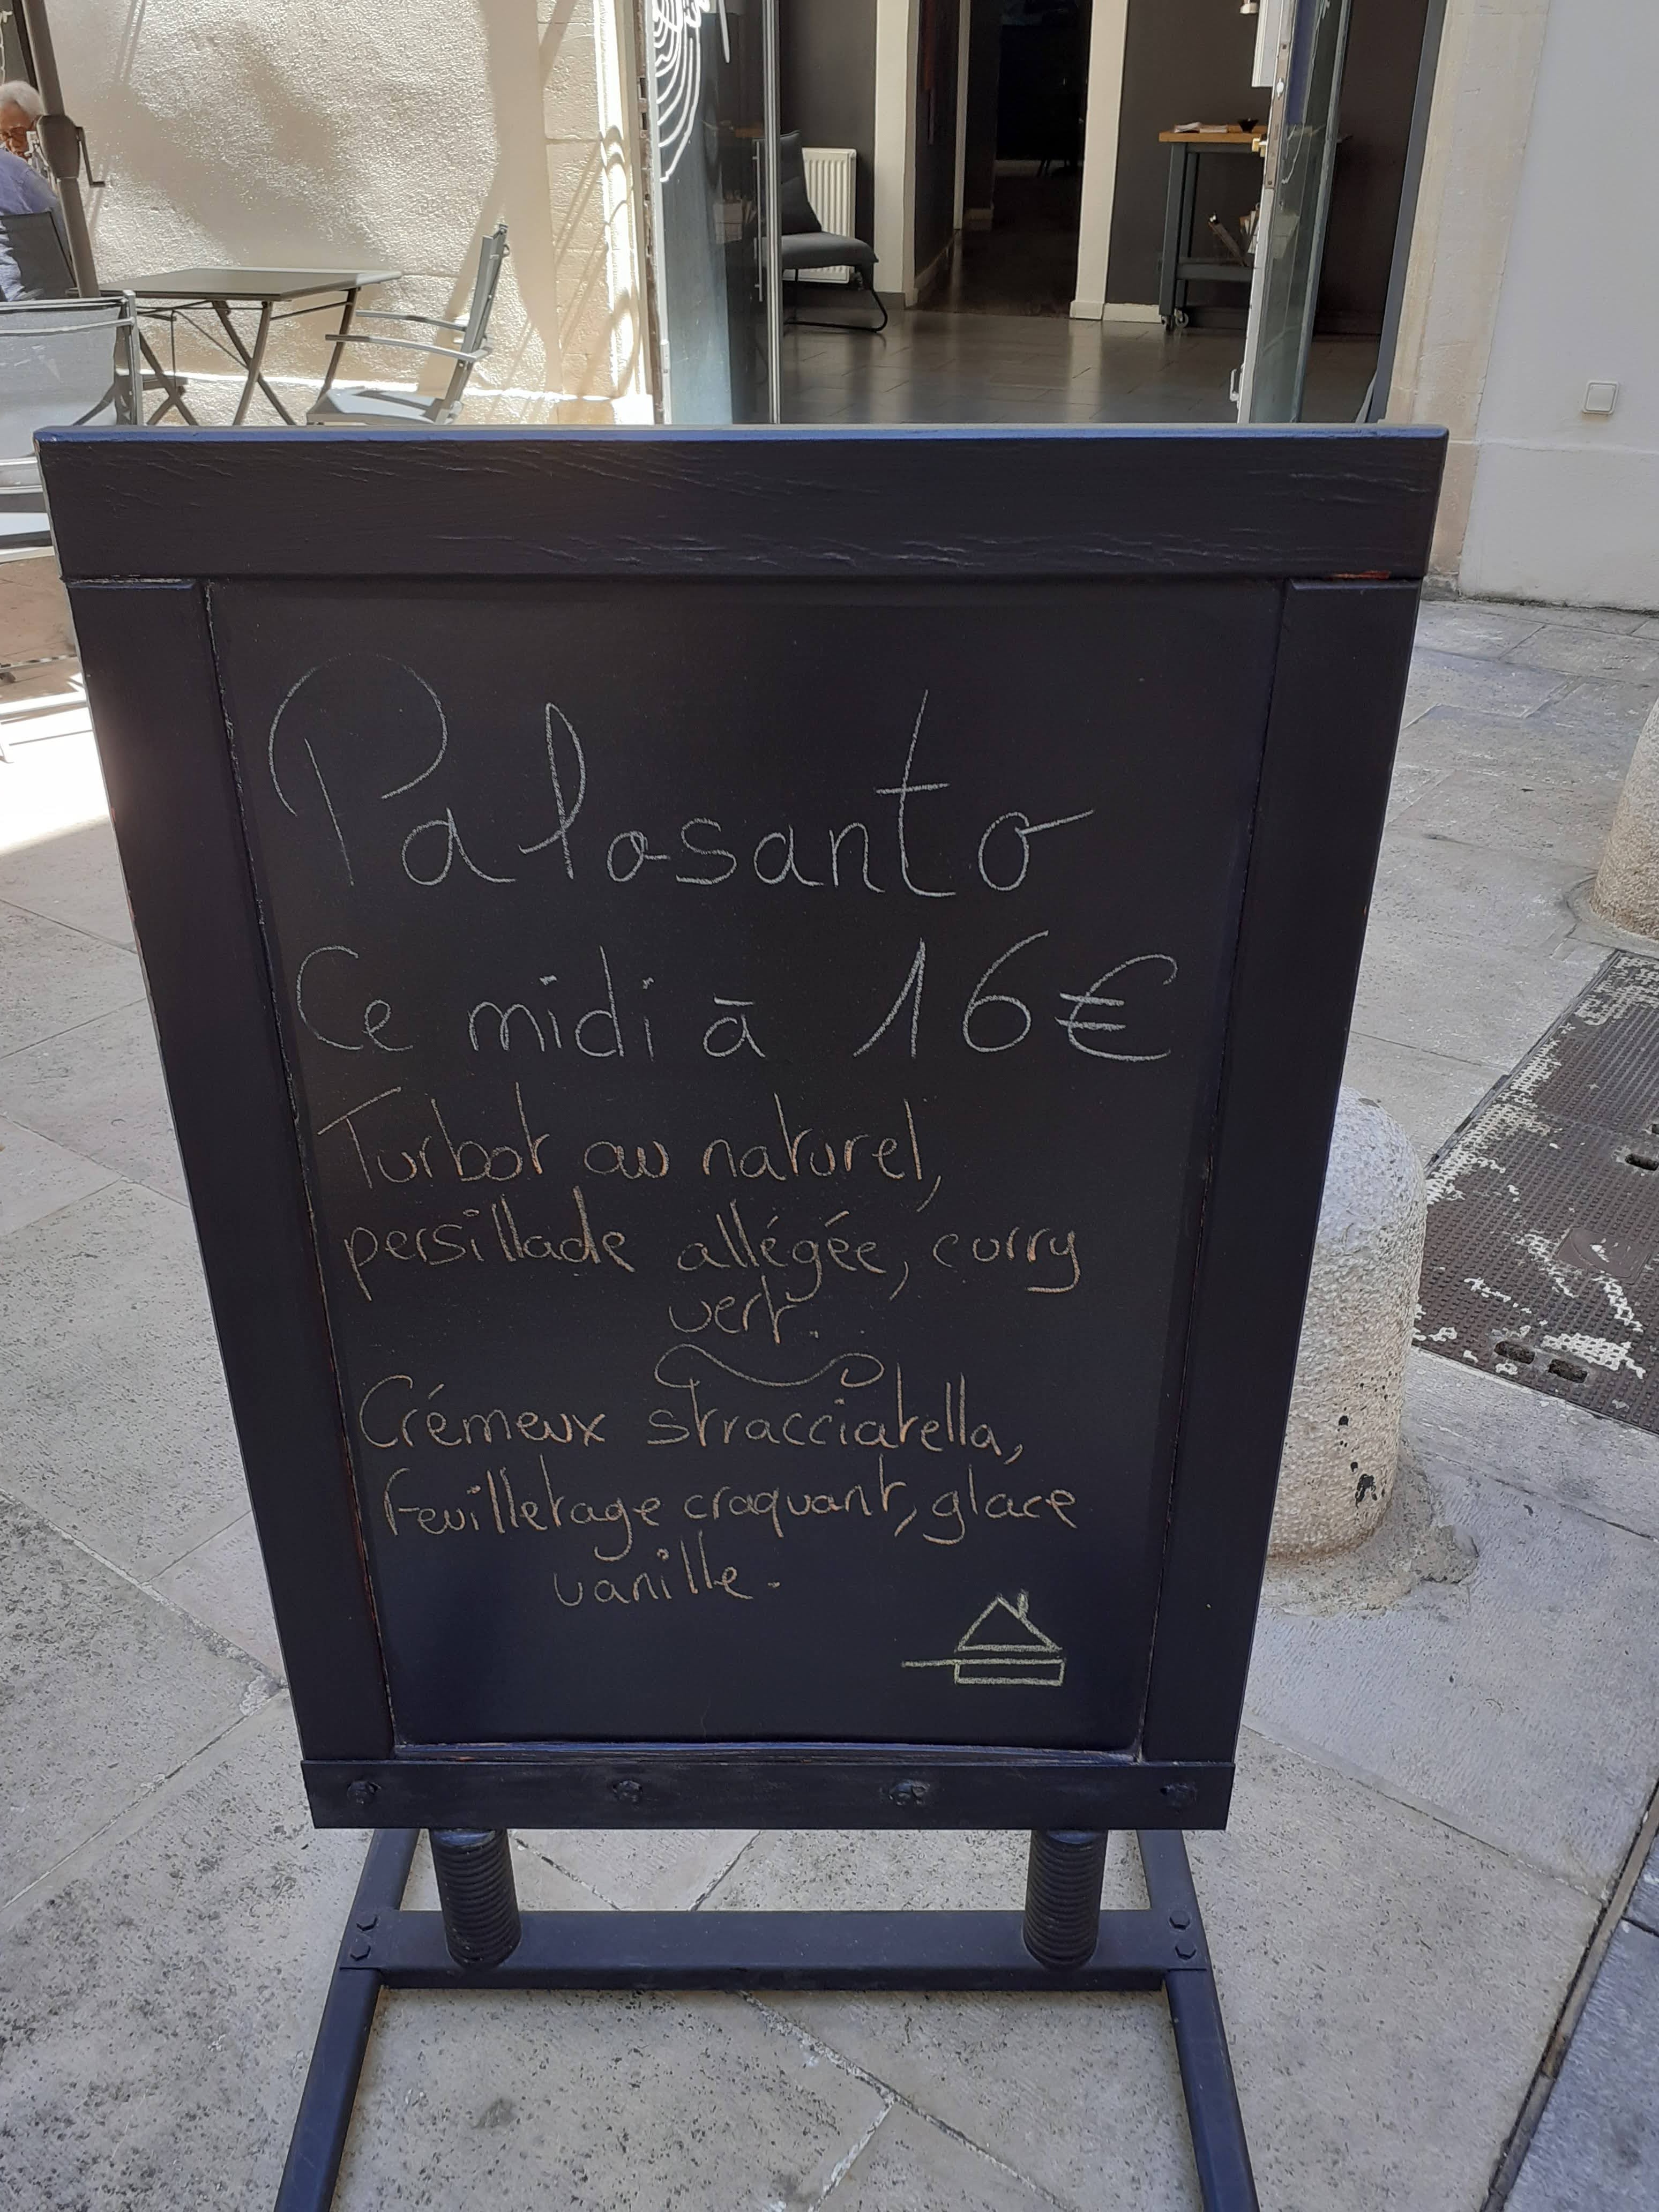 Palosanto
Ce midi à 16€
Turbot au naturel,
persillade allégée, curry
vert.
Crémeux stracciatella,
feuilletage craquant, glace
vanille.